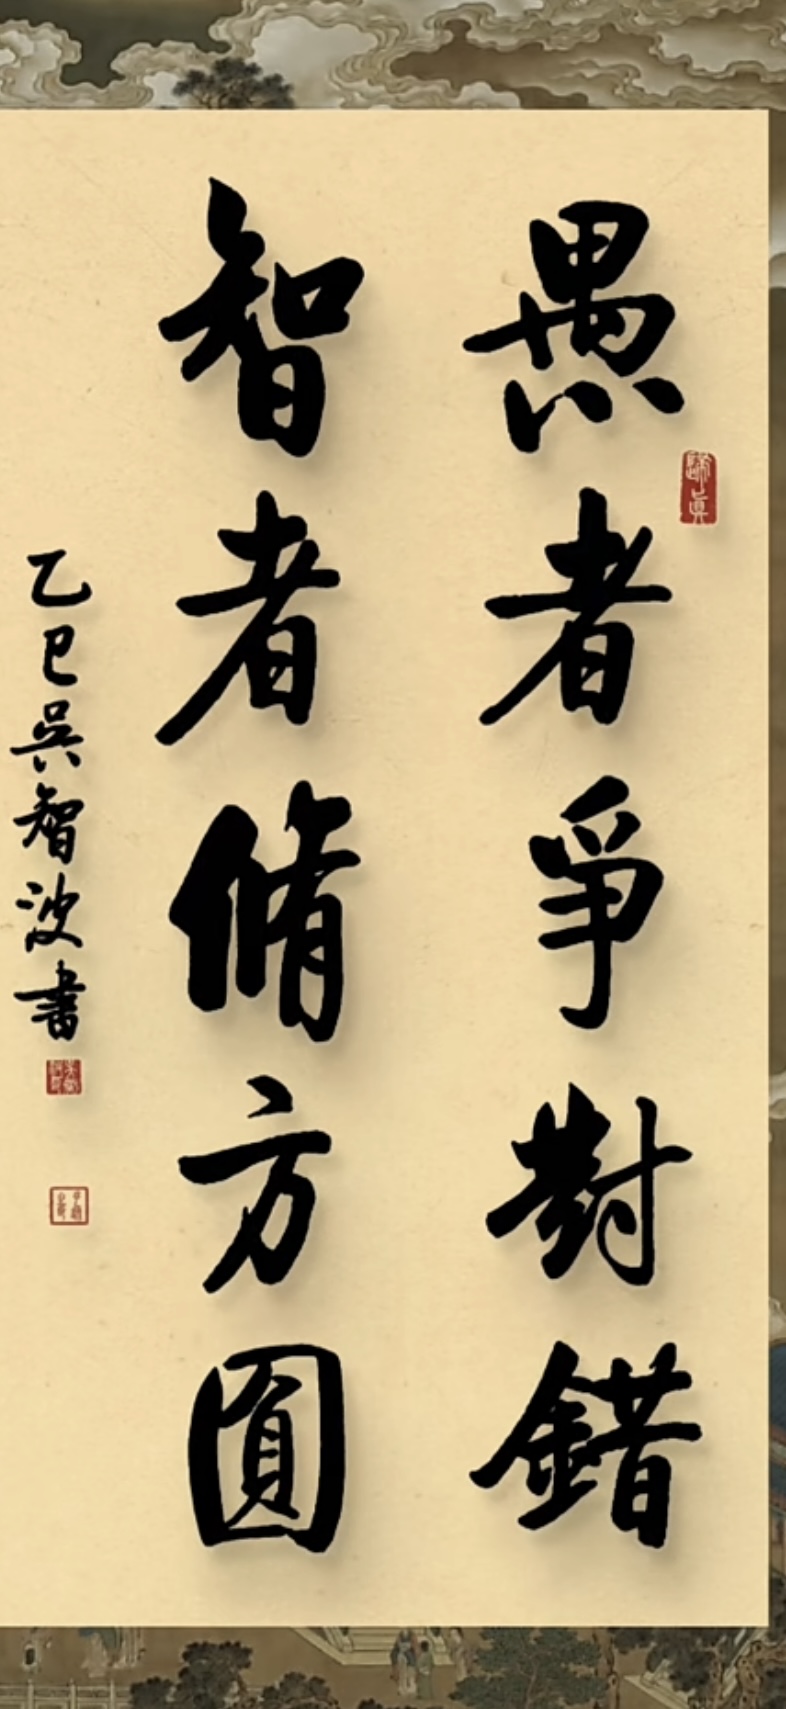 愚者爭對錯
智者脩方圓
乙巳吳智波書